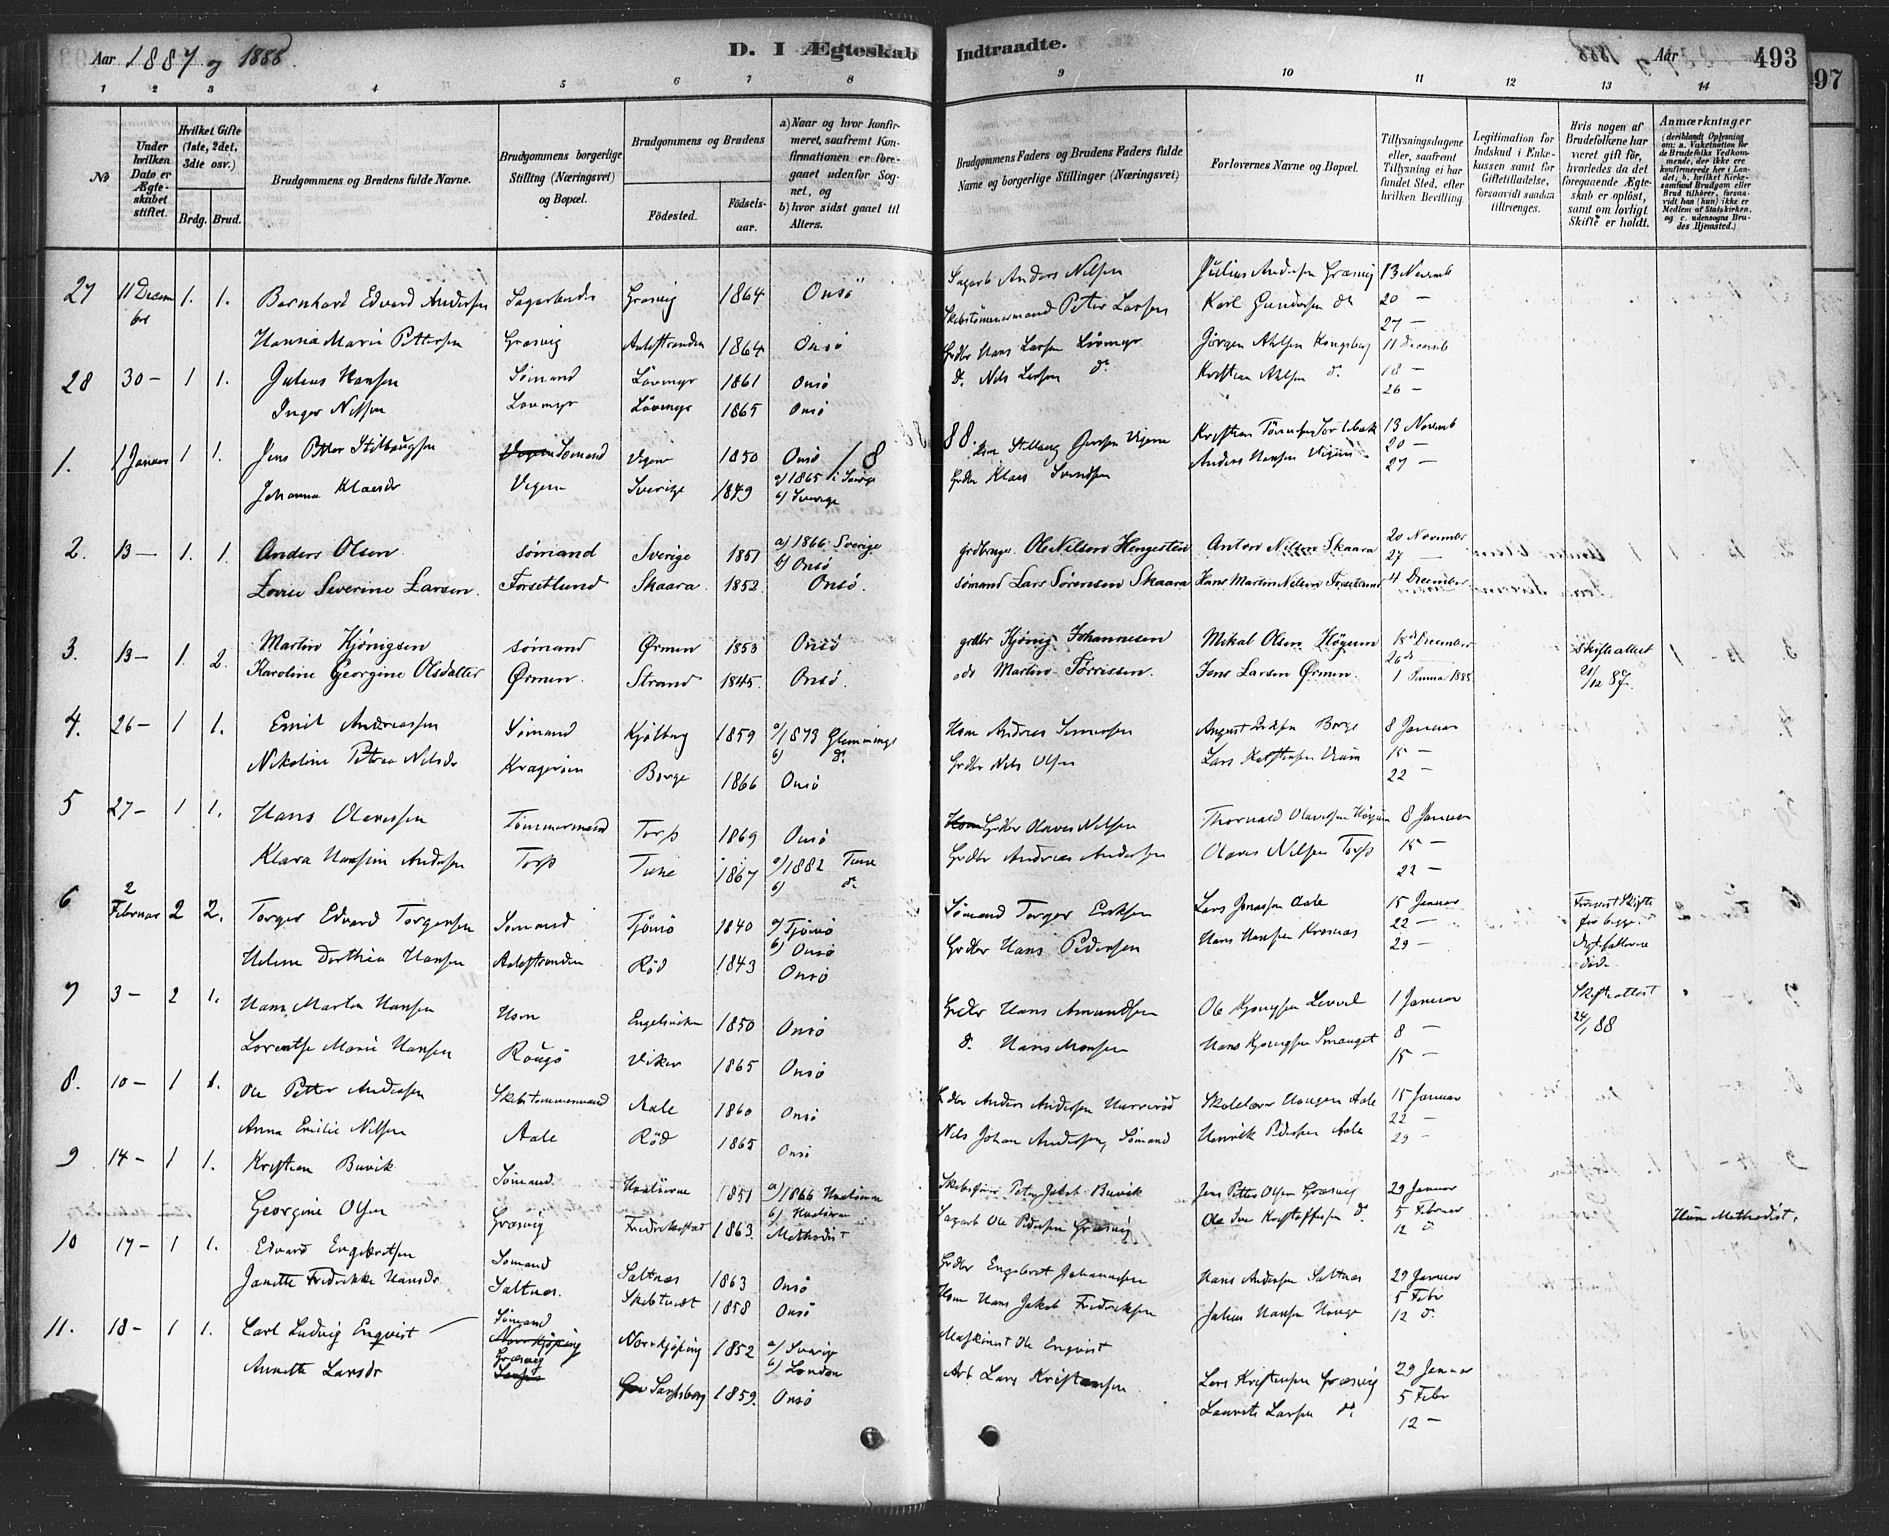 Aar 1887 og 1888.
D. I Ægteskab Indtraadte.
1888 Aar 493
97
1 2 3 4 5 6 7 8 9 10 11 12 13 14
No
Under hvilken Dato er Ægteskabet stiftet.
Hvilket Gifte (1ste, 2det, 3die osv.)
Brdg. Brud.
Brudgommens og Brudens fulde Navne.
Brudgommens borgerlige Stilling (Næringsvei) og Bopæl.
Brudgommens og Brudens
Födested. Födselsaar.
a) Naar og hvor konfirmeret, saafremt Konfirmationen er foregaaet udenfor Sognet, og
b) hvor sidst gaaet til Alters.
Brudgommens Faders og Brudens Faders fulde Navne og borgerlige Stillinger (Næringsvei)
Forlovernes Navne og Bopæl.
Tillysningsdagene eller, saafremt Tillysning ei har fundet Sted, efter hvilken Bevilling.
Legitimation for Indskud i Enkekassen samt for Giftetilladelse, forsaavidt saadan tiltrænges.
Hvis nogen af Brudefolkene har været gift för, hvorledes da det foregaaende Ægteskab er oplöst, samt om lovligt Skifte er holdt.
Anmærkninger
(deriblandt Oplysning om: a. Vakcination for de Brudefolks Vedkommende, der ikke ere konfirmerede her i Landet, b. hvilket Kirkesamfund Brudgom eller Brud tilhörer, forsaavidt han (hun) ikke er Medlem af Statskirken, og c. udensogns Brudes Hjemsted.)
27 11 December 1. 1. Bernhard Edvard Andersen Græsvig 1864 Onsö Sagarb Anders Nilsen Julius Andersen Græsvig 13 Novemb
Skibstömmermand Petter Larsen Karl Gundersen do 20 —
27 —
Hanna Marie Pettersen Græsvig Aalestranden 1864 Onsö
28 30 — 1 1. Julius Hansen Sömand Lövmyr 1861 Onsö Grdbr Hans Larsen Lövmyr Jörgen Ahlsen Kongsberg 11 Decemb
Inger Nilsen Lövmyr Lövmyr 1865 Onsö do. Nils Larsen do Kristian Ahlsen do. 18 —
26 —
18 88.
1. 1 Januar 1 1. Jens Petter Sömand Vigene 1850 Onsö 13 Novemb
Johanna Klaesdr Vigene Sverige 1849 a) 1865 i Sverige b) Sverige Grdbr Klaes Svendsen Anders Hansen Vigene 20 —
27 —
2. 13 — 1. 1. Anders Olsen sömand Sverige 1851 a) 1866 Sverige b) Onsö grdbruger Ole Nilsen Hengesten Anton Nilsen Skaara 20 November
27 —
Lovise Severine Larsen. Forsetlund Skaara 1852. Onsö. sömand Lars Sörensen Skaara Hans Martin Nilsen Forsetlund 4 December
3. 13 — 1. 2. Martin Kjönigsen sömand Örmen 1853 Onsö grdbr Kjönig Johannesen Mikal Olsen Högum 18d December Skifteattest 21/12 87.
26d
Karoline Georgine Olsdatter Örmen. Strand 1845. Onsö. do Martin Törrissen. Jens Larsen Örmen. 1 Januar 1888
4. 26 — 1 1. Emil Andreassen Sömand Kjölberg 1859 a) 1873 Glemminge b) do. Hsm Andreas August Borge 8 Januar
Nikoline Petrea Nilsdr Kragerøen Borge 1866 Onsö Grdbr Nils Olsen Lars Kristensen 15 —
22 —
5 27 — 1 1. Hans Olavessen Tömmermand Torp 1869 Onsö Grdbr Olaves Nilsen Thorvald Olavessen Högum 8 Januar
Klara Hansine Andersen Torp Tune 1867 a) 1882 Tune b) do. Grdbr Andreas Andersen Olaves Nilsen Torp 15 —
22 —
6 2 Februar 2 2. Torger Edvard Torgersen Sömand Tjömö 1840 a) Tjömö b) Onsö Sömand Torger Eriksen Lars Jonassen Aale 15 Januar
Helene Dorthea Hansen Aalestranden Röd 1843 Onsö Grdbr Hans Pedersen Hans Hansen Krosnes 22 —
29 —
7 3 — 2 1. Hans Martin Hansen Hsm Engelsviken 1850 Onsö Grdbr Hans Amundsen Ole 1 Januar Skifteattest 24/1 88
Lorentse Marie Hansen Rougö Viker 1865 Onsö do. Hans Monsen Hans 8 —
15 —
8. 10 — 1 1. Ole Petter Andersen Skibstømmermand Aale 1860 Onsö Grdbr Anders Andersen Skolelærer Haugen Aale 15 Januar
Anna Emilie Nilsen Aale Röd 1865 Onsö Nils Johan Andersen, Sömand Henrik Pedersen Aale 22 —
29 —
9 14 — 1 1. Kristian Buvik Sömand Hvaløerne 1851 a) 1866 Hvaløerne b) Hvaløerne Peter Jakob Buvik Jens Petter Olsen Græsvig 29 Januar
Georgine Olsen Græsvig Fredrikstad 1863. Methodist Sagarb Ole Pedersen Græsvig Ole Kristoffersen do. 5 Februar Hun Methodist.
12 do
10 17 — 1 1. Edvard Engebretsen Sömand Saltnæs 1863 Onsö Grdbr Engebret Johannesen Hans Andersen Saltnæs 29 Januar
Janette Fredrikke Hansdr Saltnæs. 1858 Onsö Hsm Hans Jakob Fredriksen Julius Hansen Hauge 5 Febr
12 do.
11. 18 — 1 1. Carl Ludvig Enqvist Sömand Norrkjöping Græsvig Norrkjöping 1852 a) Sverige b) London Maskinist Ole Enqvist
Annette Larsdr Sarpsborg 1859. Onsö Arb Lars Kristensen Lars Kristensen Græsvig 29 Januar
Laurits Larsen do. 5 Febr
12 —